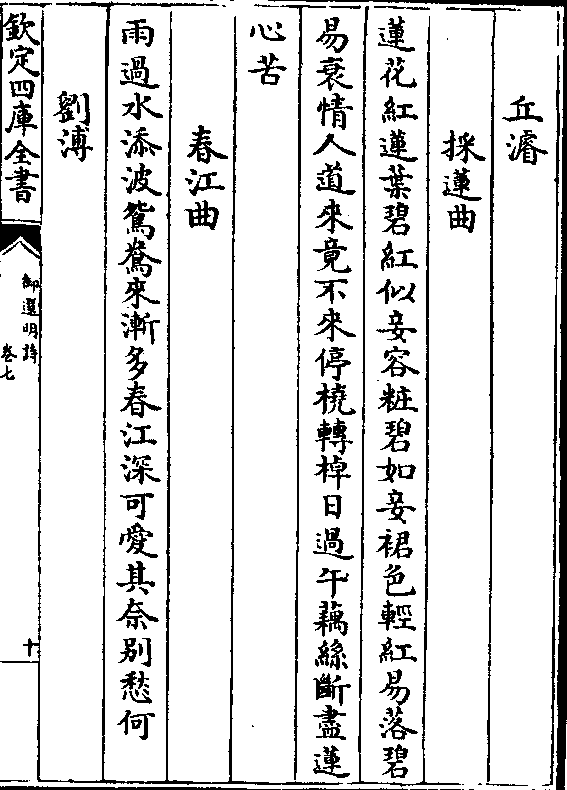 丘濬
採蓮曲
蓮花紅蓮葉碧紅似妾容粧碧如妾裙色輕紅易落碧
易衰情人道來竟不來停橈轉棹日過午藕絲斷盡蓮
心苦
春江曲
雨過水添波鴛鴦來漸多春江深可愛其奈别愁何
劉溥
欽定四庫全書
御選明詩
卷七
十